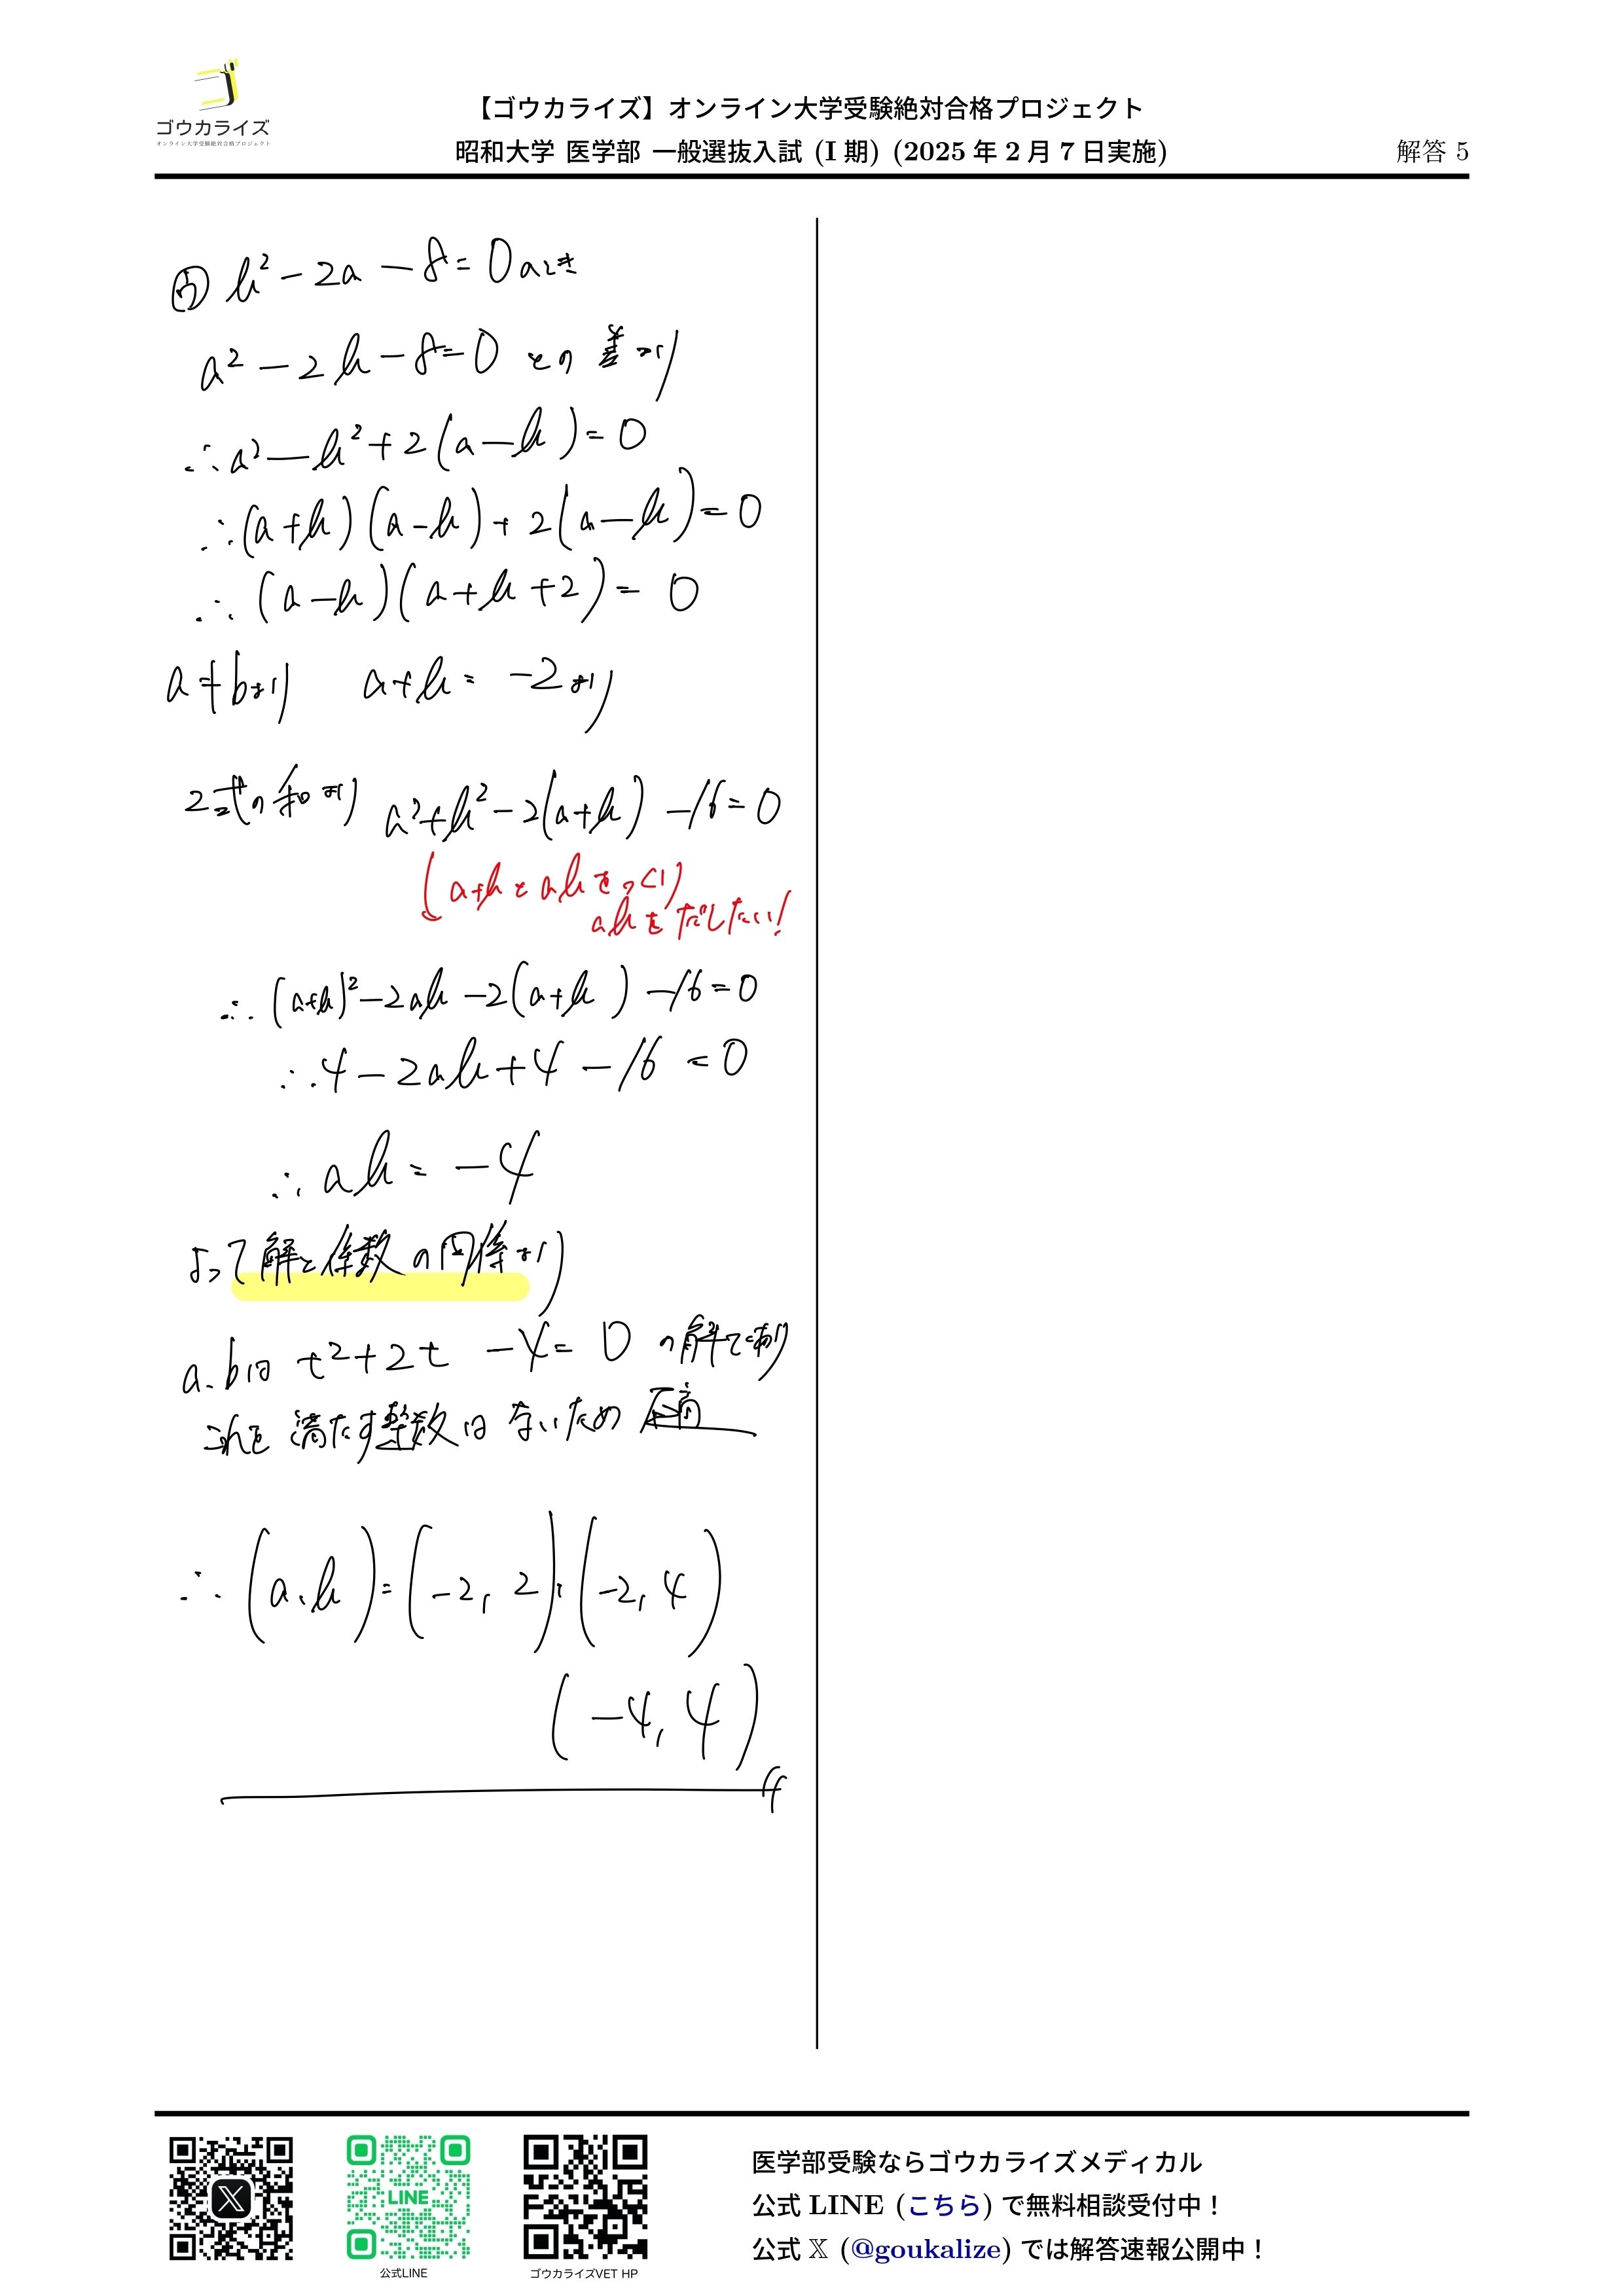 ゴウカライズ
オンライン大学受験絶対合格プロジェクト
【ゴウカライズ】オンライン大学受験絶対合格プロジェクト
昭和大学 医学部 一般選抜入試 (I 期) (2025 年 2 月 7 日実施)
解答 5
(ウ) b² − 2a − 8 = 0 のとき
a² − 2b − 8 = 0 との差より
∴ a² − b² + 2(a − b) = 0
∴ (a + b)(a − b) + 2(a − b) = 0
∴ (a − b)(a + b + 2) = 0
a ≠ b より a + b = −2 より
2式の和より a² + b² − 2(a + b) − 16 = 0
(a+b と ab をつくり
ab をだしたい!
∴ (a+b)² − 2ab − 2(a + b) − 16 = 0
∴ 4 − 2ab + 4 − 16 = 0
∴ ab = −4
よって解と係数の関係より
a, b は t² + 2t − 4 = 0 の解であり
これを満たす整数はないため不適
∴ (a, b) = (−2, 2), (−2, 4)
(−4, 4)
LINE
公式LINE
ゴウカライズVET HP
医学部受験ならゴウカライズメディカル
公式 LINE (こちら) で無料相談受付中！
公式 𝕏 (@goukalize) では解答速報公開中！